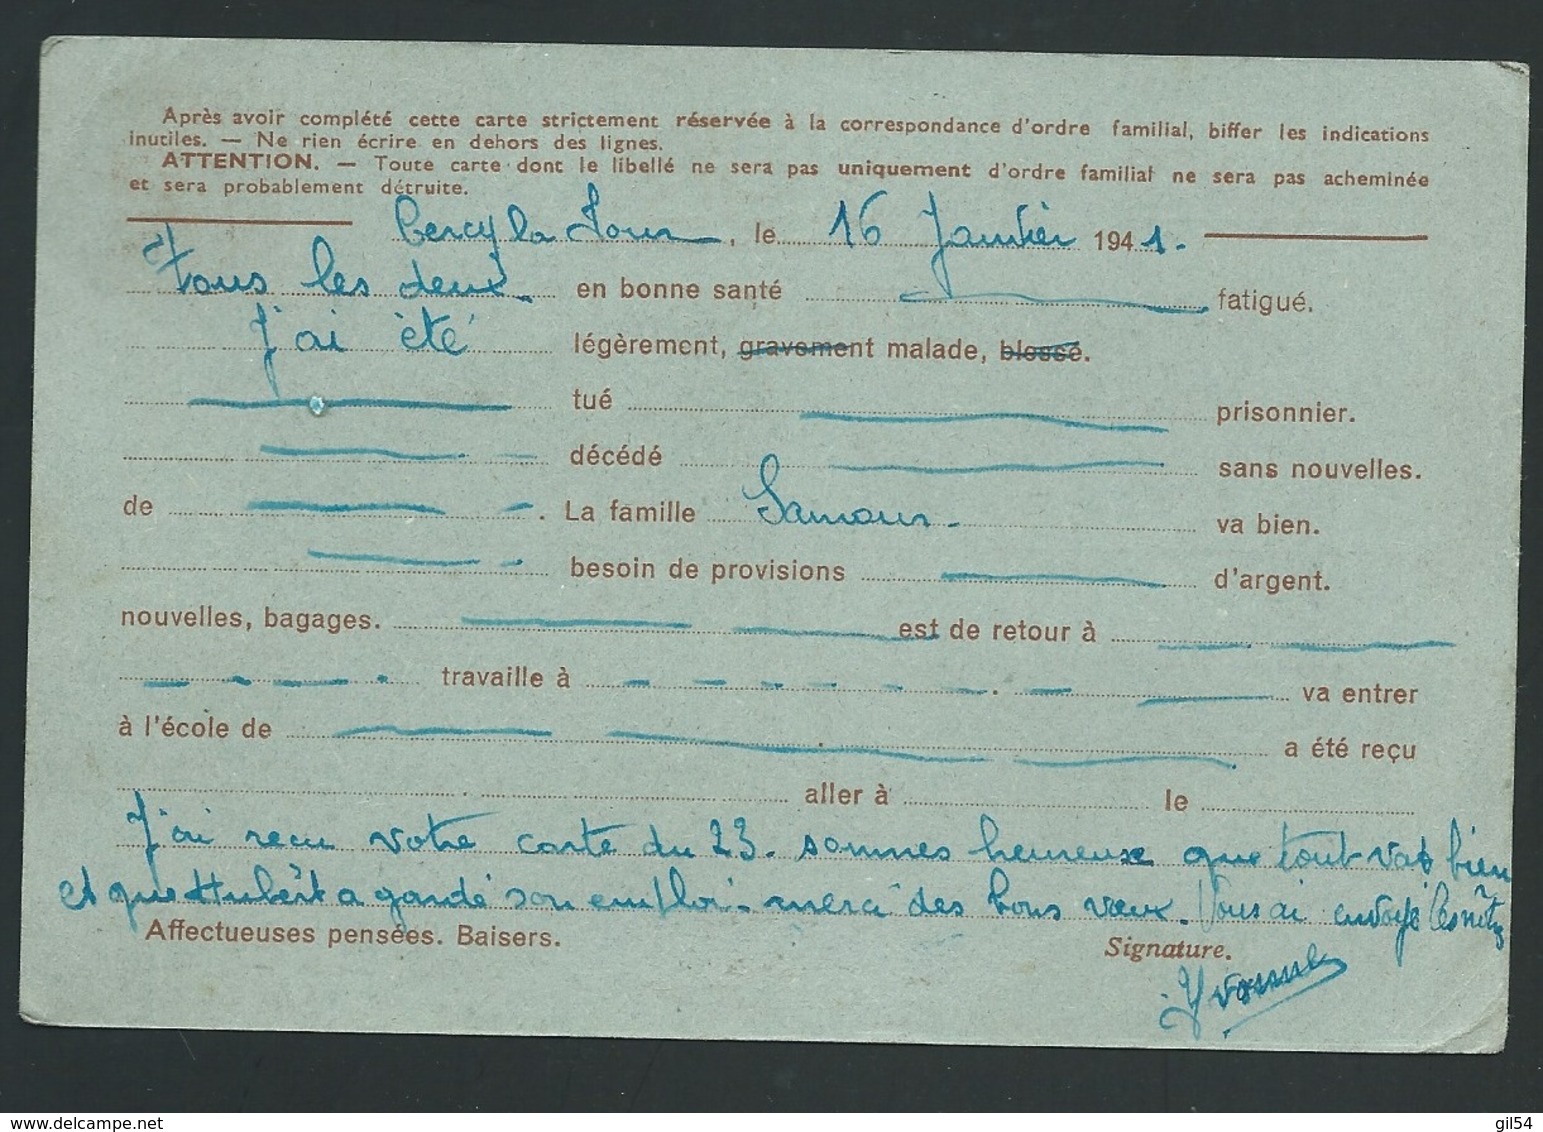 Après avoir complété cette carte strictement réservée à la correspondance d'ordre familial, biffer les indications
inutiles. — Ne rien écrire en dehors des lignes.
ATTENTION. — Toute carte dont le libellé ne sera pas uniquement d'ordre familial ne sera pas acheminée
et sera probablement détruite.
Cercy la Tour, le 16 Janvier 1941.
tous les deux. en bonne santé fatigué.
J'ai été légèrement, gravement malade, blessé.
tué prisonnier.
décédé sans nouvelles.
de . La famille Samour. va bien.
besoin de provisions d'argent.
nouvelles, bagages. est de retour à
travaille à . va entrer
à l'école de a été reçu
aller à le
J'ai reçu votre carte du 23. sommes heureux que tout va bien
et que Hubert a gardé son emploi. merci des bons vœux. Vous ai envoyé les
Affectueuses pensées. Baisers. Signature.
Yvonne
delcampe.net gil54